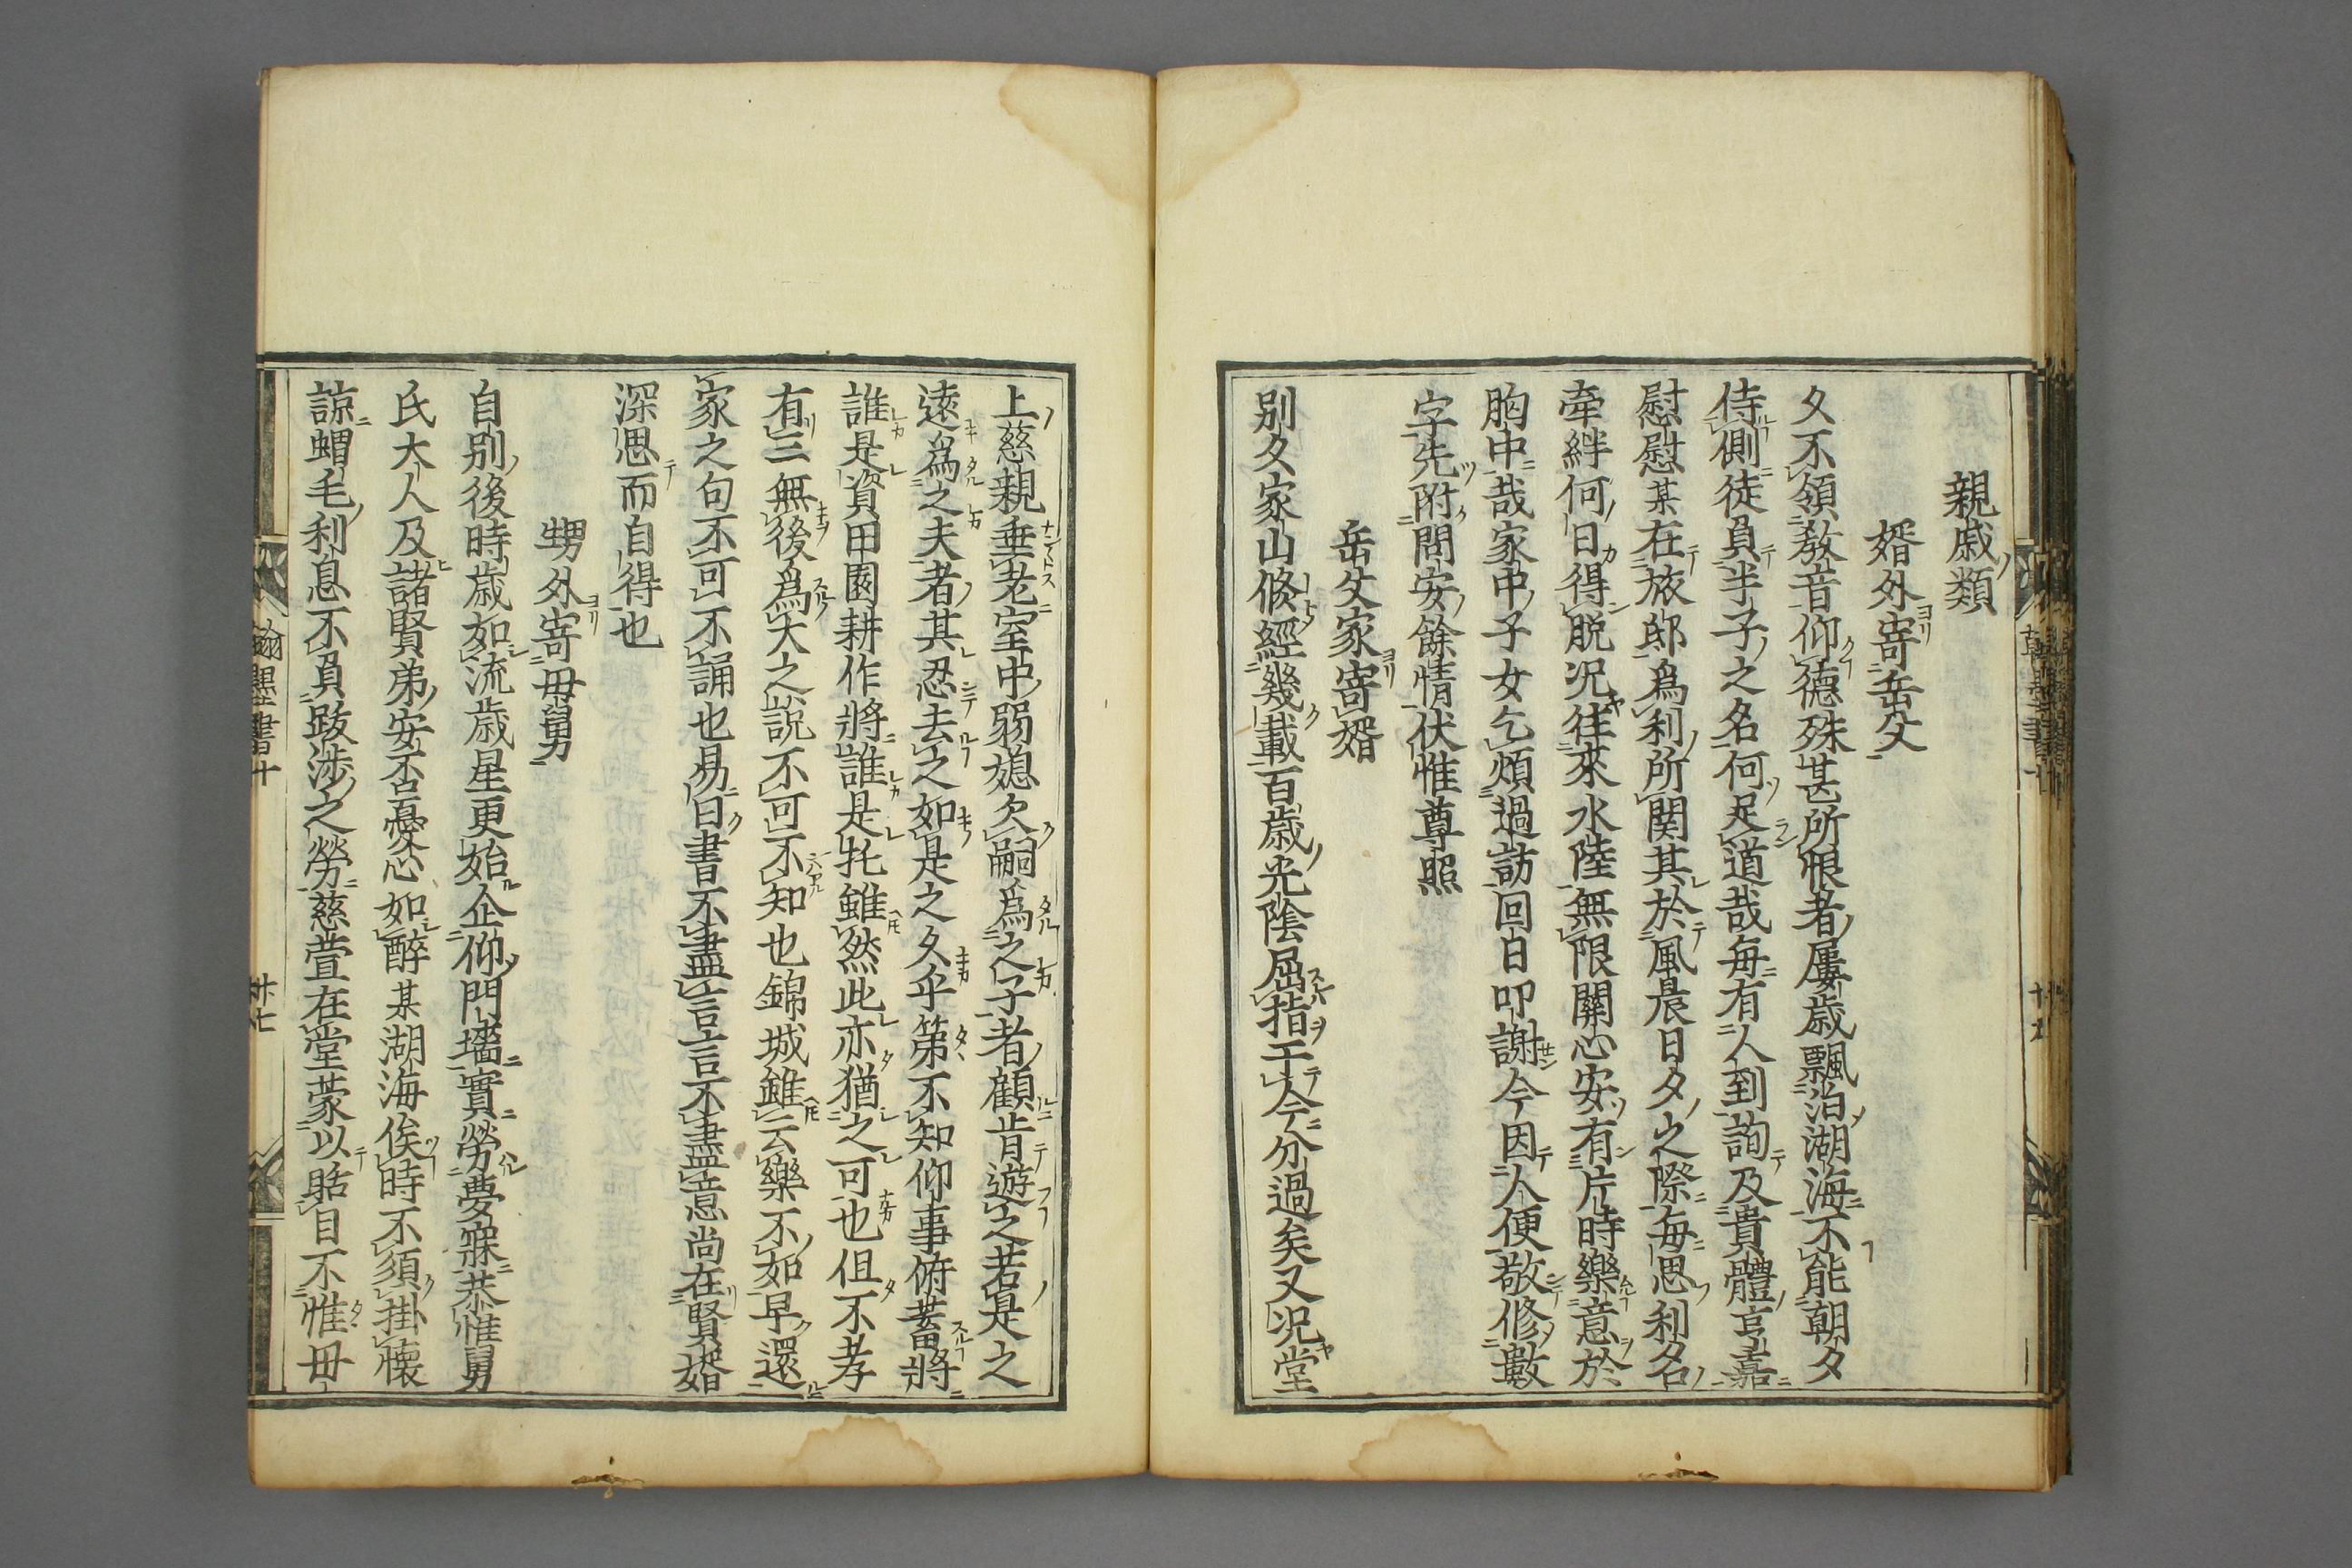 親戚類
婿外寄岳父
久不領教音仰德殊甚所恨者屢歳飄泊湖海不能朝夕
侍側徒負半子之名何足道哉每有人到詢及貴體亨嘉
慰慰某在旅邸爲利所関其於風晨日夕之際每思利名
牽絆何日得脱况往來水陸無限關心安有片時樂意於
胸中哉家中子女乞煩過訪回日叩謝今因人便敬修數
字先附問安餘情伏惟尊照
岳父家寄婿
别久家山倐經幾載百歳光陰屈指于今分過矣又况堂
上慈親垂老室中弱媳欠嗣爲之子者顧肯遊之若是之
遠爲之夫者其忍去之如是之久乎第不知仰事俯蓄將
誰是資田園耕作將誰是托雖然此亦猶之可也但不孝
有三無後爲大之説不可不知也錦城雖云樂不如早還
家之句不可不誦也易曰書不盡言言不盡意尚在賢婿
深思而自得也
甥外寄母舅
自别後時歳如流歳星更始企仰門墻實勞夢寐恭惟舅
氏大人及諸賢弟安否憂心如醉某湖海俟時不須掛懐
諒蝟毛利息不負跋涉之勞慈萱在堂蒙以晧目不惟毋
翰墨書十
廿七